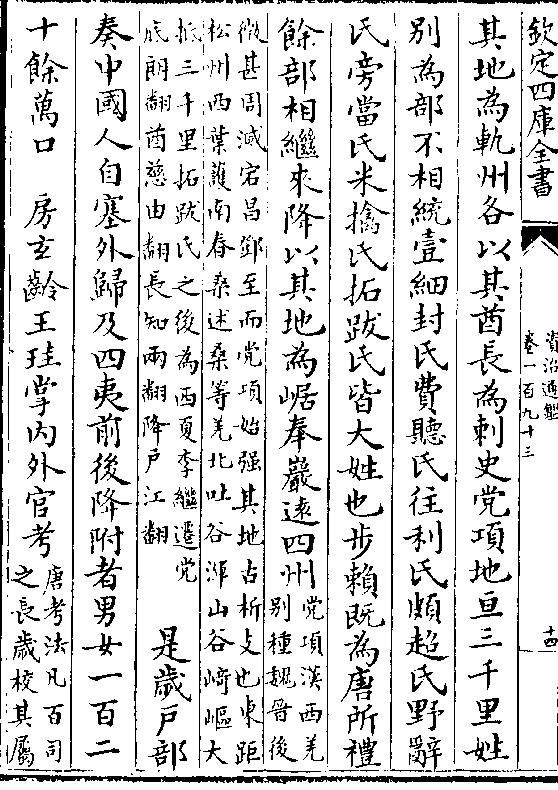 欽定四庫全書
資治通鑑
卷一百九十三
十四
其地為軌州各以其酋長為刺史党項地亘三千里姓
別為部不相統壹細封氏費聽氏往利氏頗超氏野辭
氏旁當氏米擒氏拓跋氏皆大姓也步賴既為唐所禮
餘部相繼來降以其地為崌奉巖逺四州
党項漢西羌
别種魏晉後
微甚周滅宕昌鄧至而党項始强其地古析支也東距
松州西葉護南春桑述桑等羌北吐谷渾山谷﨑嶇大
抵三千里拓跋氏之後為西夏李繼遷党
底朗翻酋慈由翻長知兩翻降戸江翻
是歲戸部
奏中國人自塞外歸及四夷前後降附者男女一百二
十餘萬口 房玄齡王珪掌内外官考
唐考法凡百司
之長歲校其屬